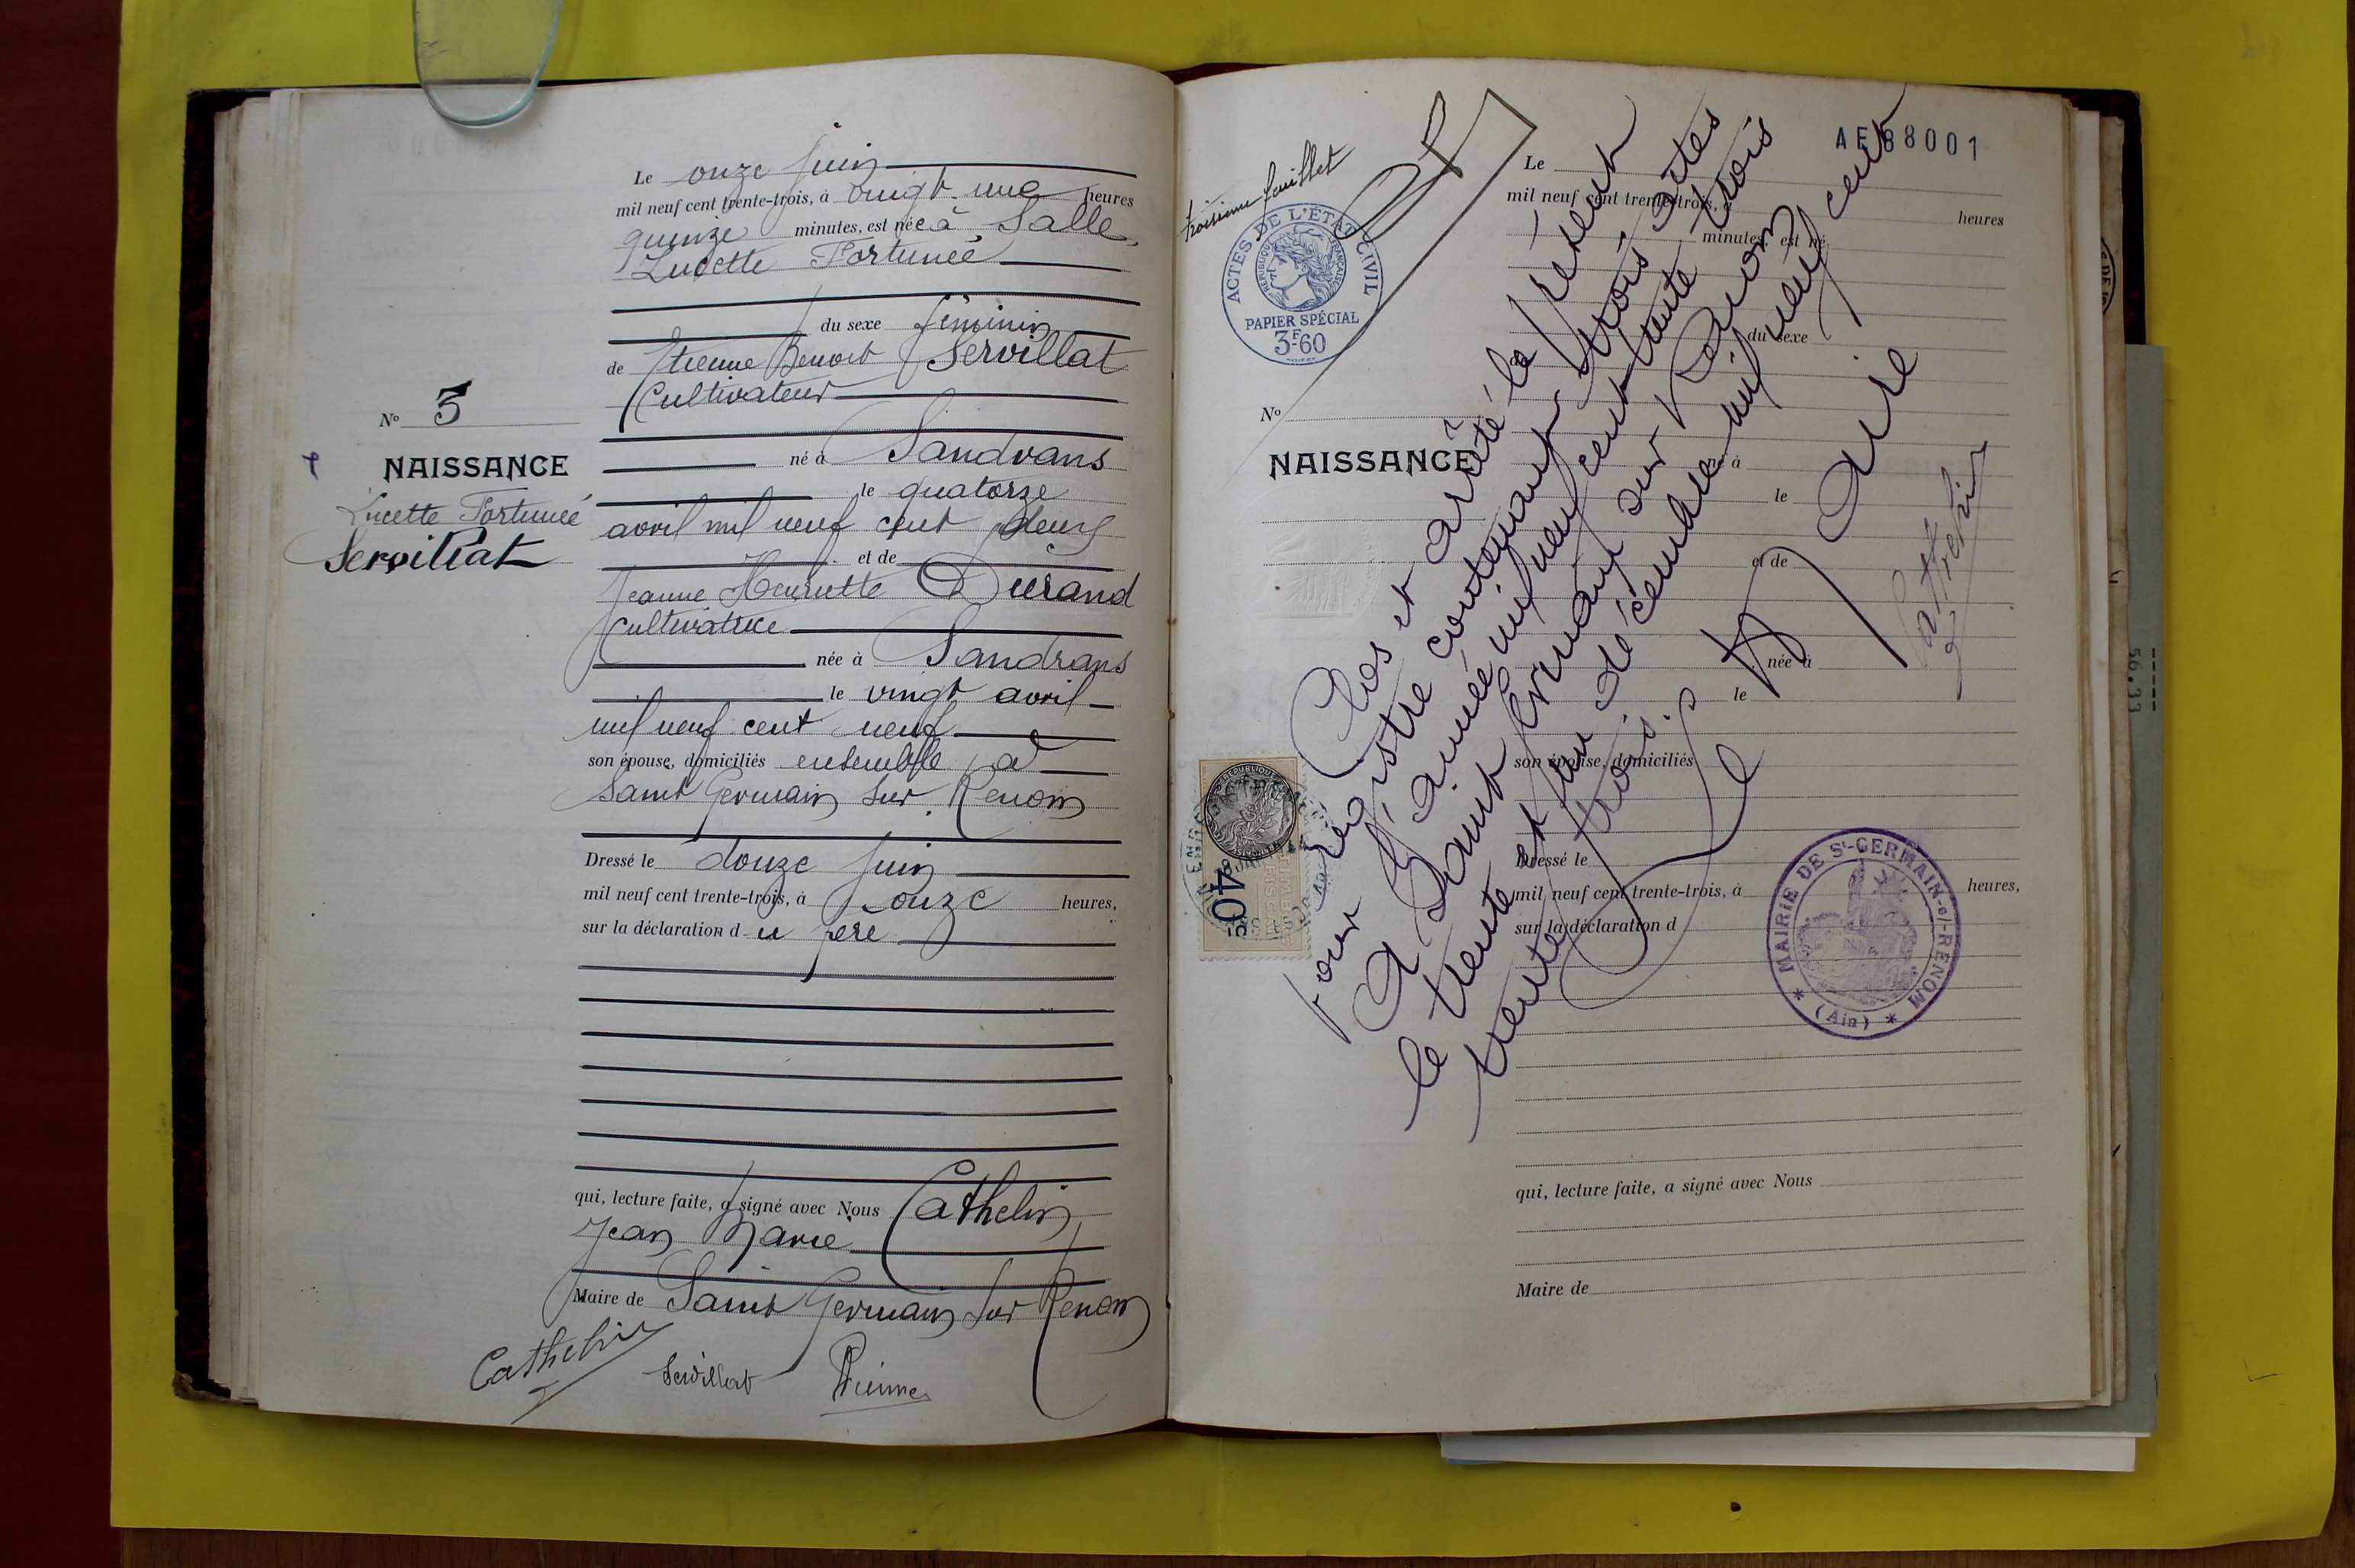 Le onze Juin
mil neuf cent trente-trois, à vingt une heures
quinze minutes, est née à Salle,
Lucette Fortunée
du sexe féminin
de Etienne Benoit Servillat
Cultivateur
né à Sandrans
le quatorze
avril mil neuf cent deux
et de
Jeanne Henriette Durand
Cultivatrice
née à Sandrans
le vingt avril
mil neuf cent neuf
son épouse, domiciliés ensemble à
Saint Germain sur Renom
Dressé le douze Juin
mil neuf cent trente-trois, à onze heures,
sur la déclaration du père
qui, lecture faite, a signé avec Nous Cathelin
Jean Marie
Maire de Saint Germain sur Renom
Cathelin Servillat Etienne
No 3
NAISSANCE
Lucette Fortunée
Servillat
troisième feuillet
ACTES DE L'ÉTAT CIVIL
RÉPUBLIQUE FRANÇAISE
PAPIER SPÉCIAL
3F60
AE88001
No
NAISSANCE
Le
mil neuf cent trente-trois, à
heures
minutes, est né
du sexe
de
né à
le
et de
née à
le
son épouse, domiciliés
Dressé le
mil neuf cent trente-trois, à heures,
sur la déclaration d
qui, lecture faite, a signé avec Nous
Maire de
Clos et arrêté le présent
registre contenant trois actes
pour l'année mil neuf cent trente trois
A Saint Germain sur Renom
le trente et un décembre mil neuf cent
trente trois.
Le Maire
Cathelin
MAIRIE DE St-GERMAIN-s/-RENOM
* (Ain) *
40